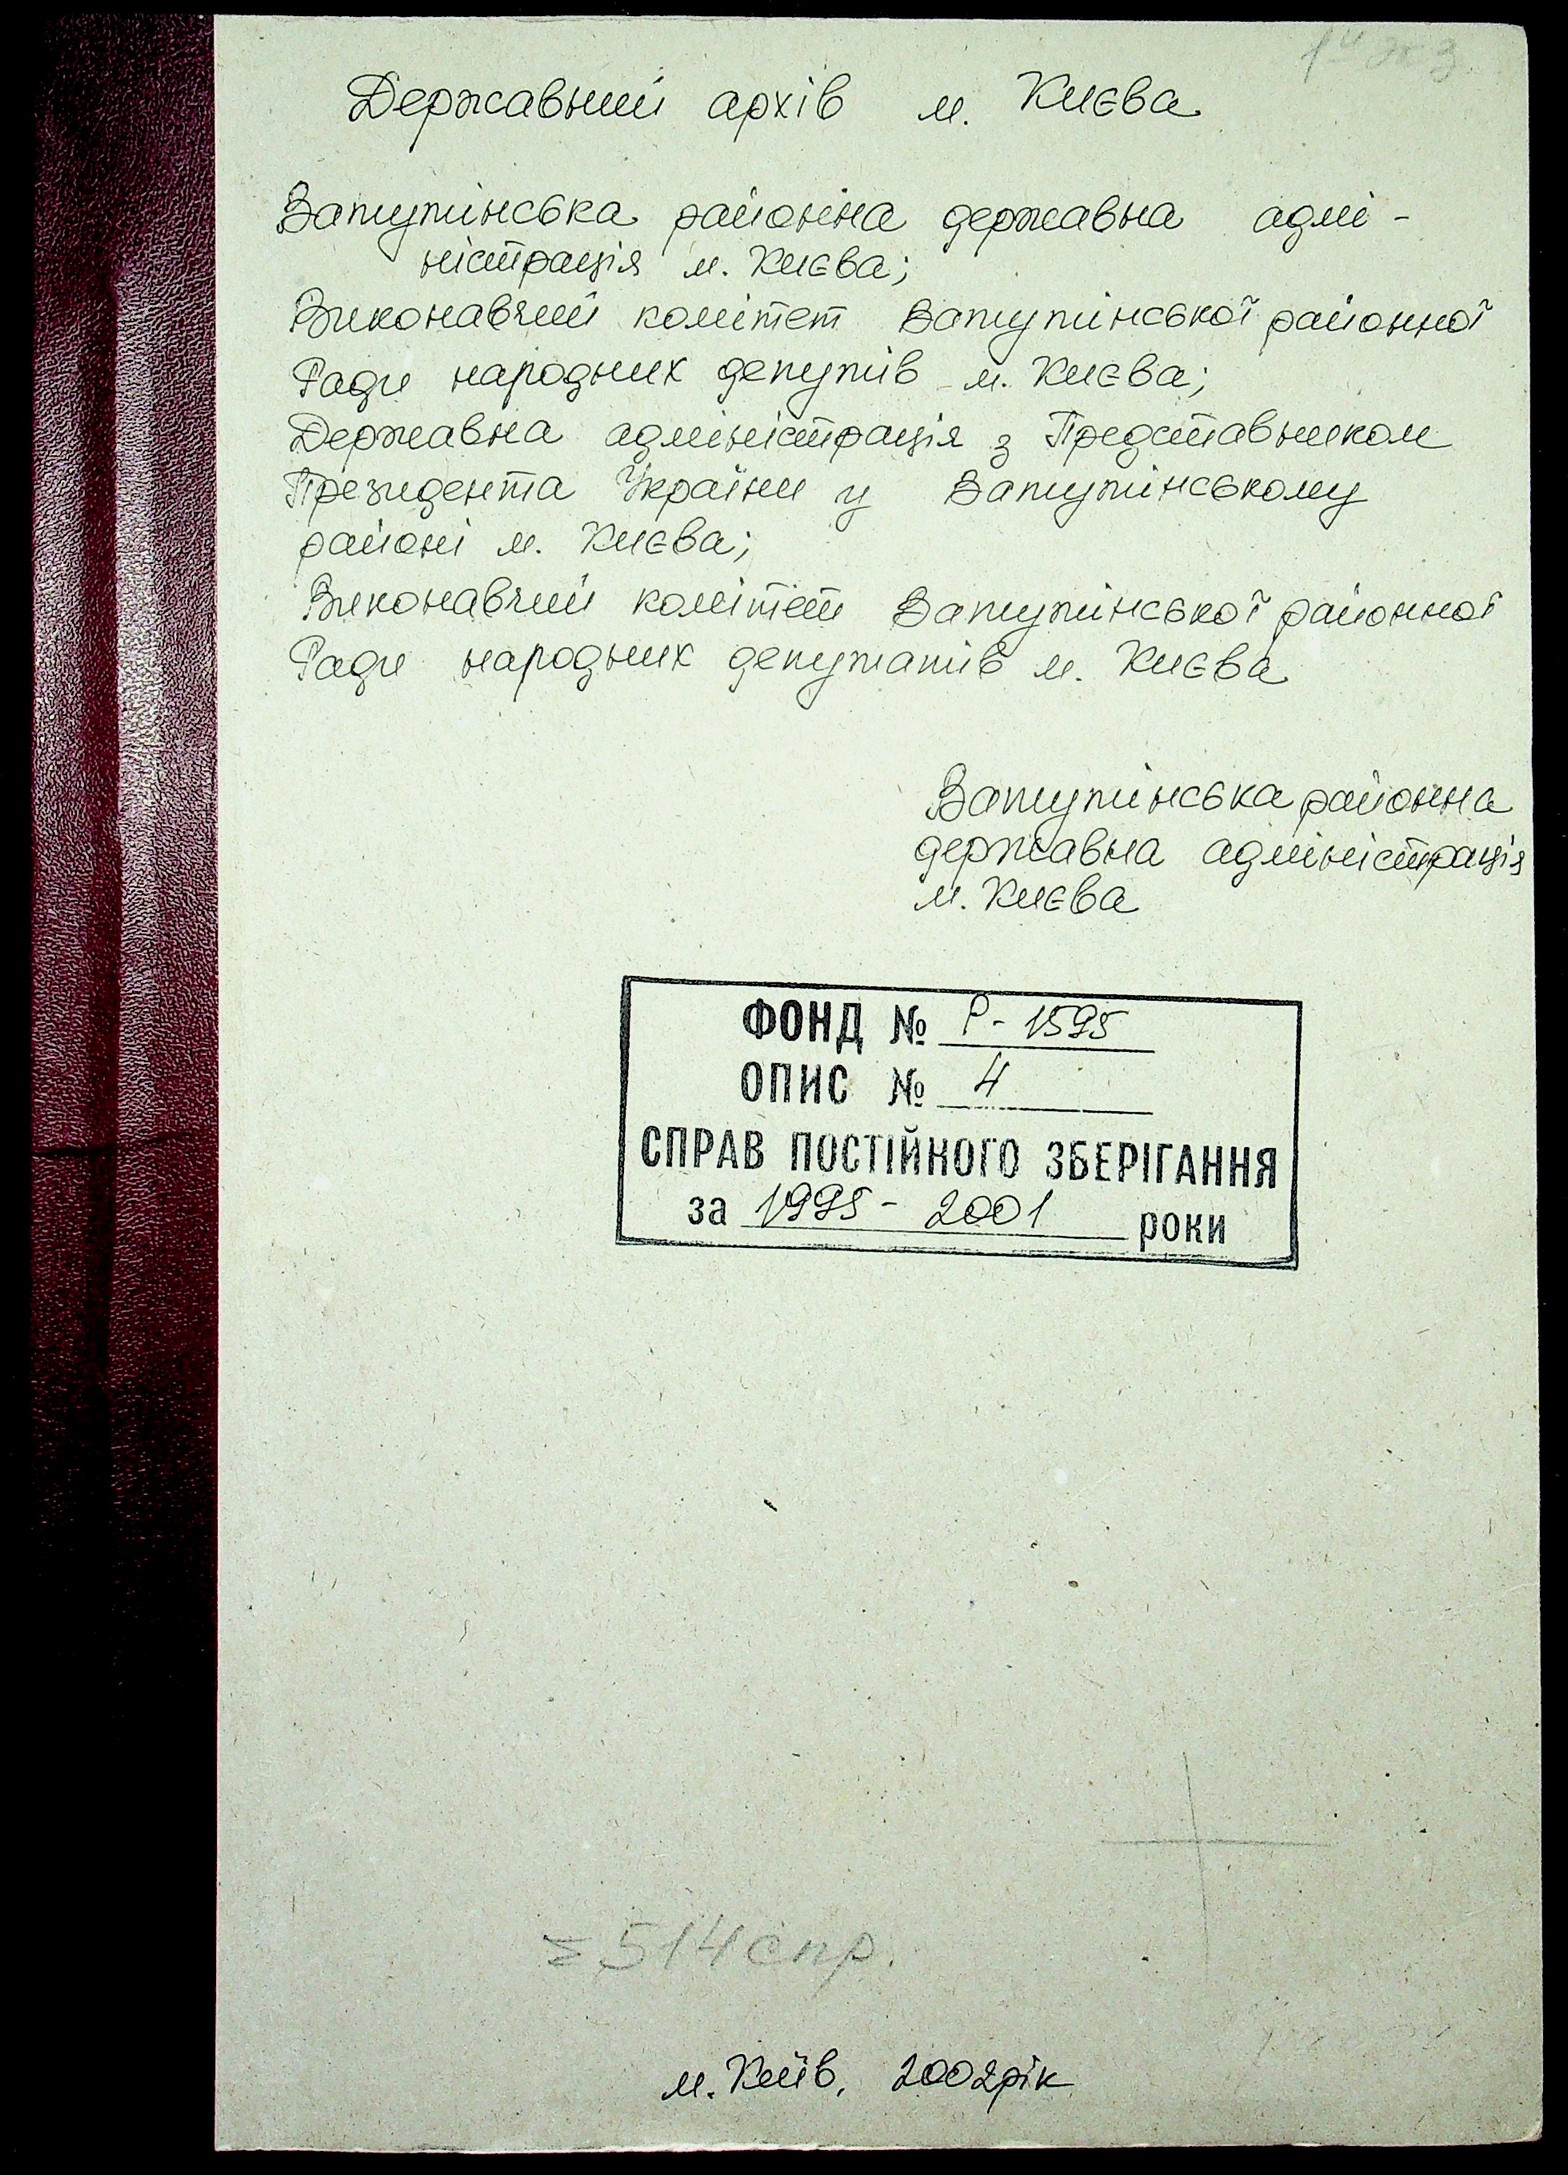 1й экз
Державний архів м. Києва
Ватутінська районна державна адмі-
ністрація м. Києва;
Виконавчий комітет Ватутінської районної
Ради народних депутів м. Києва;
Державна адміністрація з Представником
Президента України у Ватутінському
районі м. Києва;
Виконавчий комітет Ватутінської районної
Ради народних депутатів м. Києва
Ватутінська районна
державна адміністрація
м. Києва
ФОНД № Р-1595
ОПИС № 4
СПРАВ ПОСТІЙНОГО ЗБЕРІГАННЯ
за 1995-2001 роки
Σ 514 спр.
м. Київ, 2002 рік